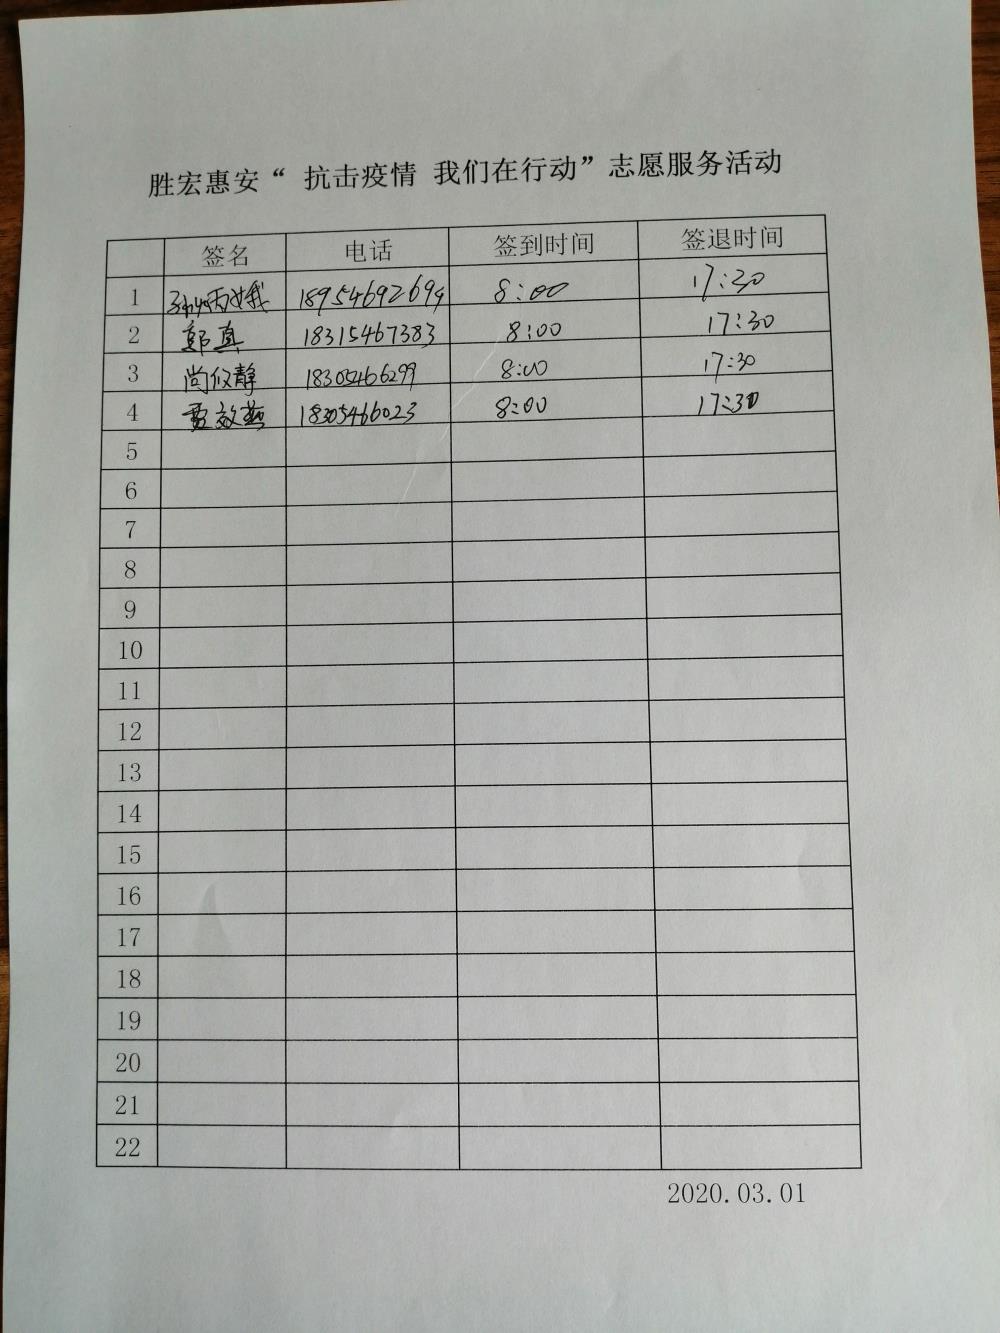 胜宏惠安“ 抗击疫情 我们在行动”志愿服务活动
签名 电话 签到时间 签退时间
1 18954692699 8:00 17:30
2 郭真 18315467383 8:00 17:30
3 尚仪静 18305466299 8:00 17:30
4 贾效燕 18305466023 8:00 17:30
5
6
7
8
9
10
11
12
13
14
15
16
17
18
19
20
21
22
2020.03.01